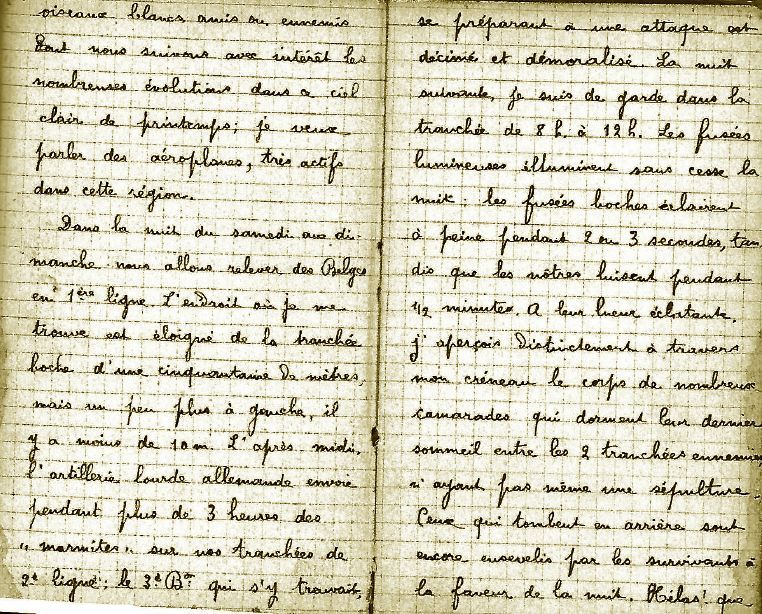 oiseaux blancs amis ou ennemis
dont nous suivons avec intérêt les
nombreuses évolutions dans ce ciel
clair de printemps ; je veux
parler des aéroplanes, très actifs
dans cette région.
Dans la nuit du samedi au di-
manche nous allons relever des Belges
en 1ère ligne. L'endroit où je me
trouve est éloigné de la tranchée
boche d'une cinquantaine de mètres,
mais un peu plus à gauche, il
y a moins de 10 m. L'après-midi,
l'artillerie lourde allemande envoie
pendant plus de 3 heures des
"marmites" sur nos tranchées de
2e ligne ; le 3e Bon qui s'y trouvait,
se préparant à une attaque est
décimé et démoralisé. La nuit
suivante, je suis de garde dans la
tranchée de 8 h. à 12 h. Les fusées
lumineuses illuminent sans cesse la
nuit ; les fusées boches éclairent
à peine pendant 2 ou 3 secondes, tan
dis que les nôtres luisent pendant
1/2 minute. A leur lueur éclatante,
j'aperçois distinctement à travers
mon créneau le corps de nombreux
camarades qui dorment leur dernier
sommeil entre les 2 tranchées ennemies,
n'ayant pas même une sépulture.
Ceux qui tombent en arrière sont
encore ensevelis par les survivants à
la faveur de la nuit. Hélas! que